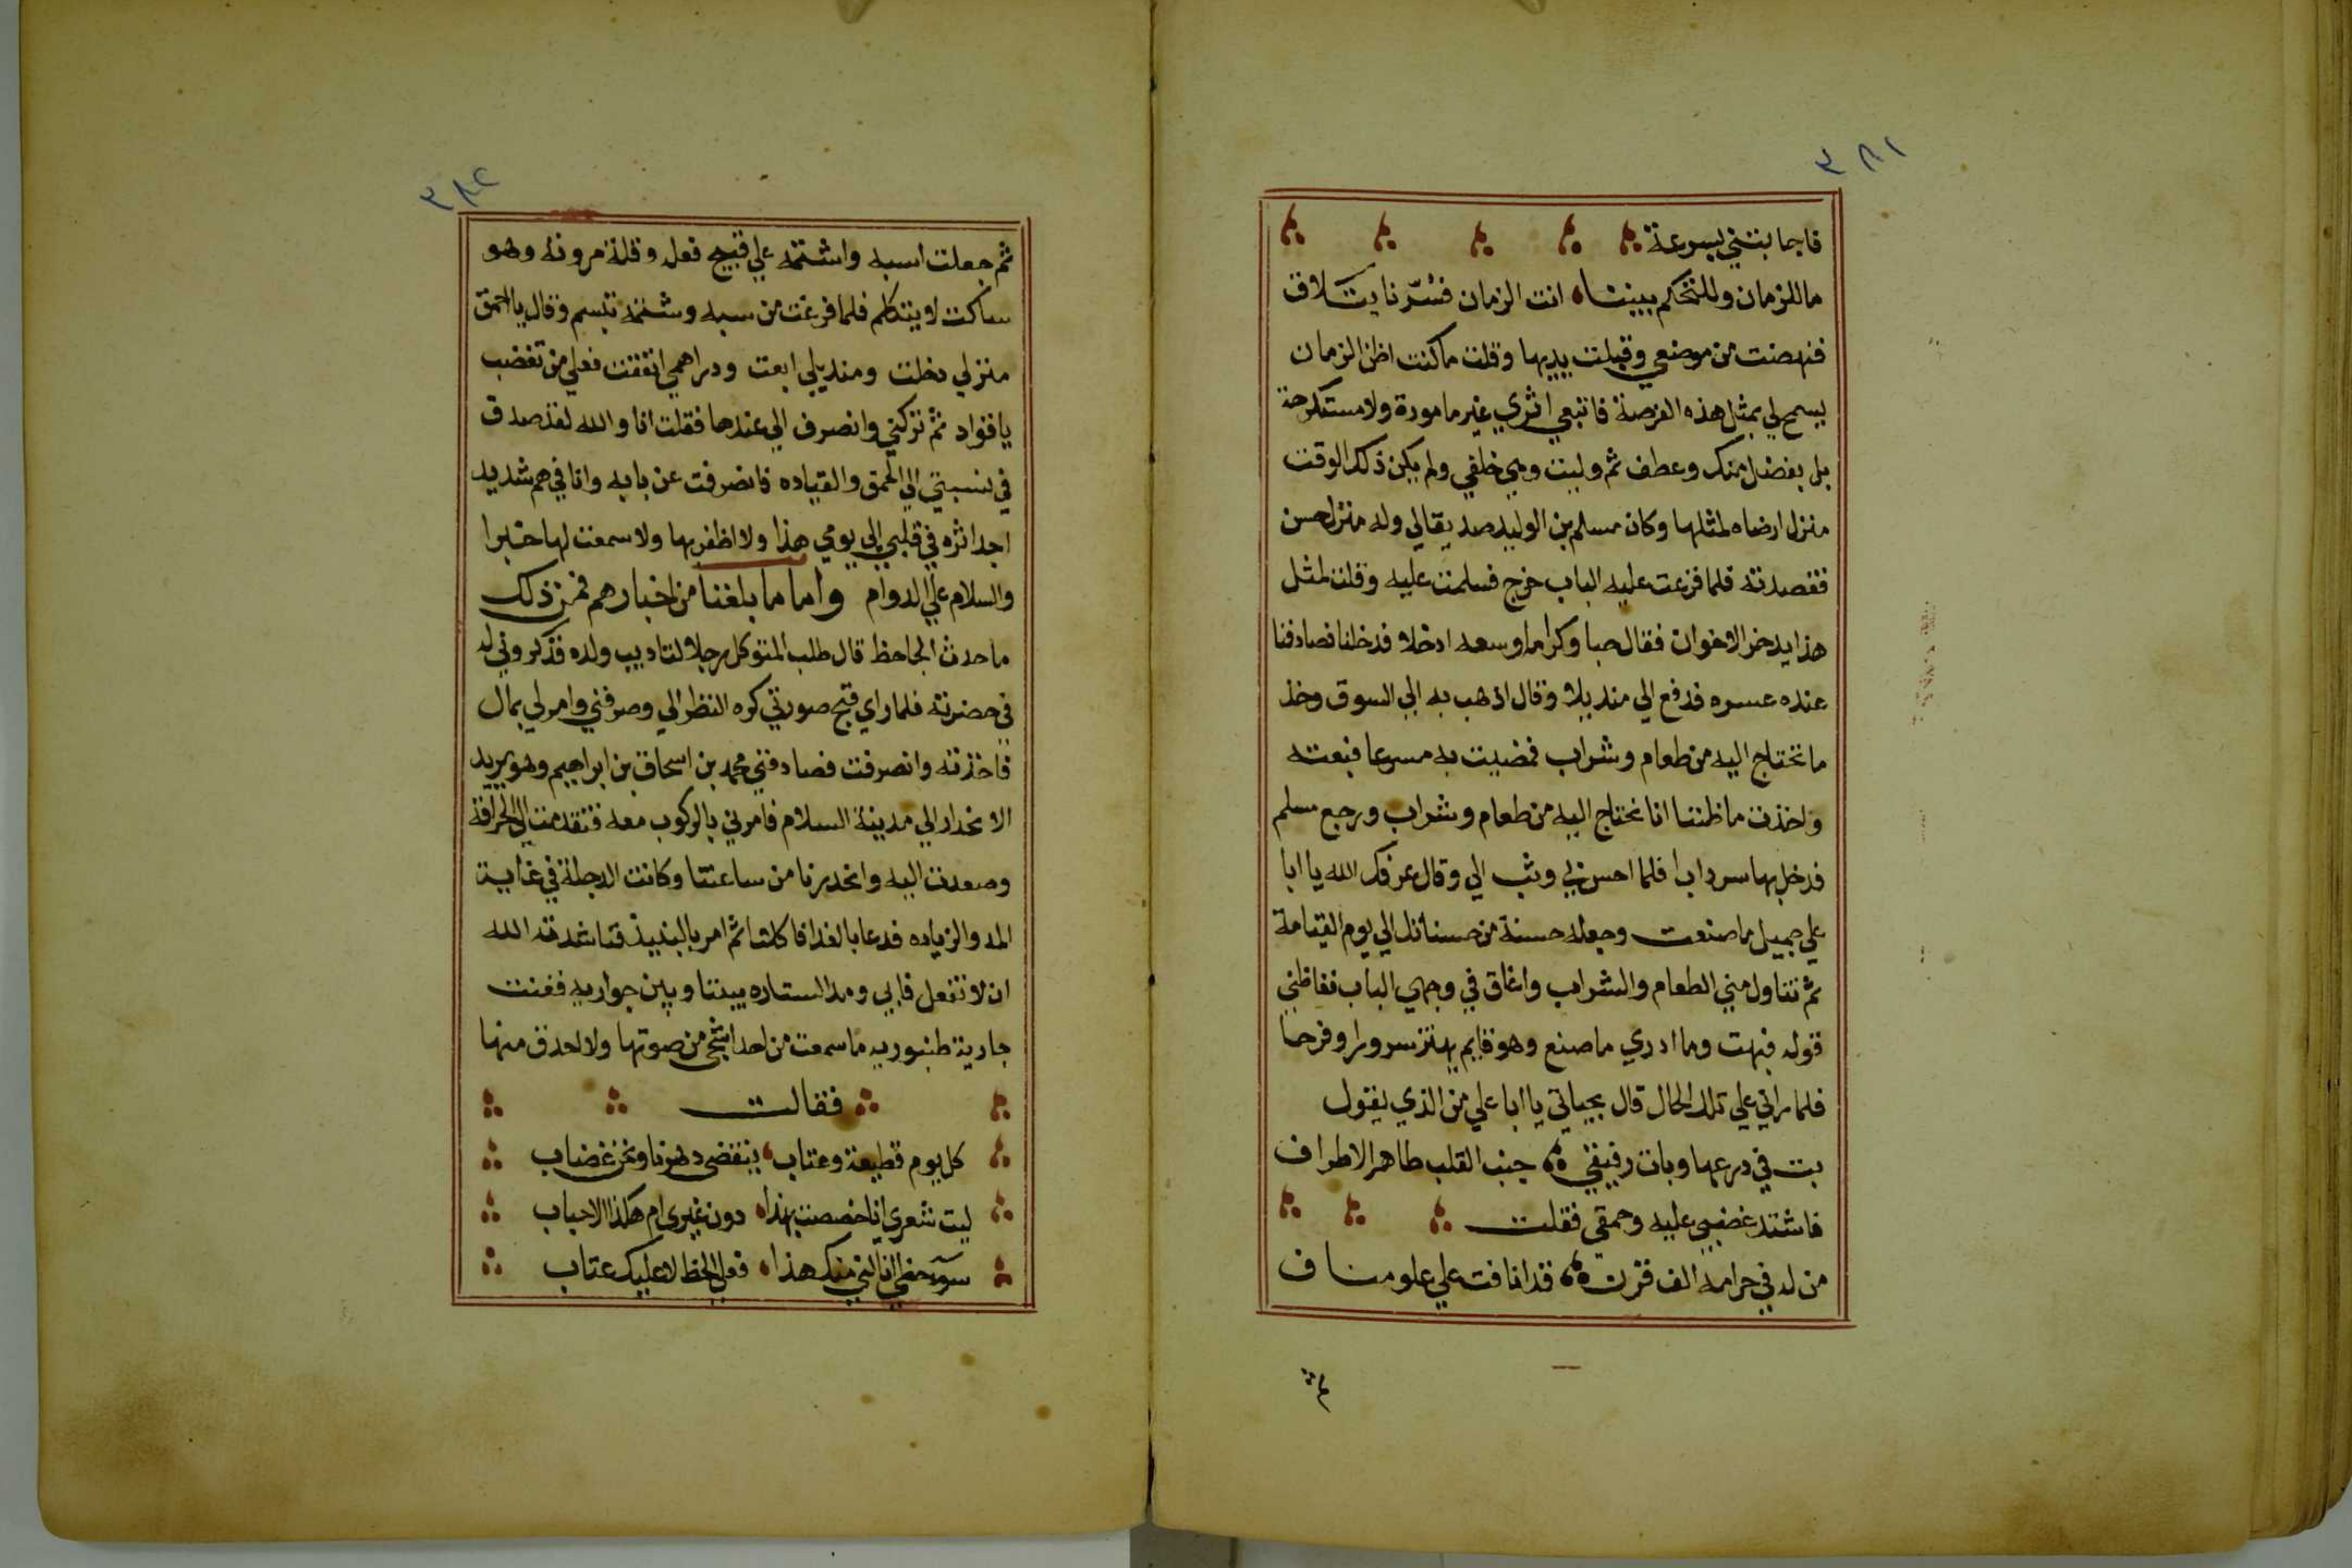 ٣٨١
فاجابتني بسرعة
ما للزمان وللتحكم بيننا انت الزمان فسرّنا بتلاق
فنهضت من موضعي وقبلت يديها وقلت ما كنت اظن الزمان
يسمح لي بمثل هذه الفرصة فاتبعي اثري غير مامورة ولا مستكرهة
بل بفضل منك وعطف ثم وليت وهي خلفي ولم يكن ذلك الوقت
منزل ارضاه لمثلها وكان مسلم بن الوليد صديقا لي وله منزل حسن
فقصدته فلما قرعت عليه الباب خرج فسلمت عليه وقلت لمثل
هذا يدخر الاخوان فقال حبا وكراما وسعه ادخلا فدخلنا فصادفنا
عنده عسره فدفع الي منديلا وقال اذهب به الي السوق وخذ
ما تحتاج اليه من طعام وشراب فمضيت به مسرعا فبعته
واخذت ما ظننا انا نحتاج اليه من طعام وشراب ورجع مسلم
فدخل بها سردابا فلما احس بي وثب الي وقال عرفك الله يا ابا
علي جميل ما صنعت وجعله حسنة من حسناتك الي يوم القيامة
ثم تناول مني الطعام والشراب واغلق في وجهي الباب فغاظني
قوله فبهت وما ادري ما صنع وهو قايم يهتز سرورا وفرحا
فلما راني علي تلك الحال قال بحياتي يا ابا علي من الذي يقول
بت في درعها وبات رفيقي جنب القلب طاهر الاطراف
فاشتد غضبي عليه وحمقي فقلت
من له في حرامه الف قرن قد انافت علي علو مناف
ثم
٣٨٢
ثم جعلت اسبه واشتمه علي قبيح فعله وقلة مروته وهو
ساكت لا يتكلم فلما فرغت من سبه وشتمه تبسم وقال يا احمق
منزلي دخلت ومنديلي ابعت ودراهمي انفقت فعلي من تغضب
يا قواد ثم تركني وانصرف الي عندها فقلت انا والله لقد صدق
في نسبتي الي الحمق والقياده فانصرفت عن بابه وانا في هم شديد
اجد اثره في قلبي الي يومي هذا ولا اظفر بها ولا سمعت لها خبرا
والسلام علي الدوام واما ما بلغنا من اخبارهم فمن ذلك
ما حدث الجاحظ قال طلب المتوكل رجلا لتاديب ولده فذكروني له
في حضرته فلما راي قبح صورتي كره النظر الي وصرفني وامر لي بمال
فاخذته وانصرفت فصادفني محمد بن اسحاق بن ابراهيم وهو يريد
الانحدار الي مدينة السلام فامرني بالركوب معه فتقدمت الي الحراقة
وصعدت اليه وانحدرنا من ساعتنا وكانت الدجلة في غاية
المد والزياده فدعا بالغدا فاكلنا ثم امر بالنبيذ فناشدته الله
ان لا تفعل فابي ومد الستاره بيننا وبين جواريه فغنت
جارية طنبوريه ما سمعت من احد اشجى من صوتها ولا احدق منها
فقالت
كل يوم قطيعة وعتاب ينقضي دهرنا ونحن غضاب
ليت شعري انا خصصت بهذا دون غيري ام هكذا الاحباب
سوء حظي انالني منك هذا فعلي الحظ لا عليك عتاب